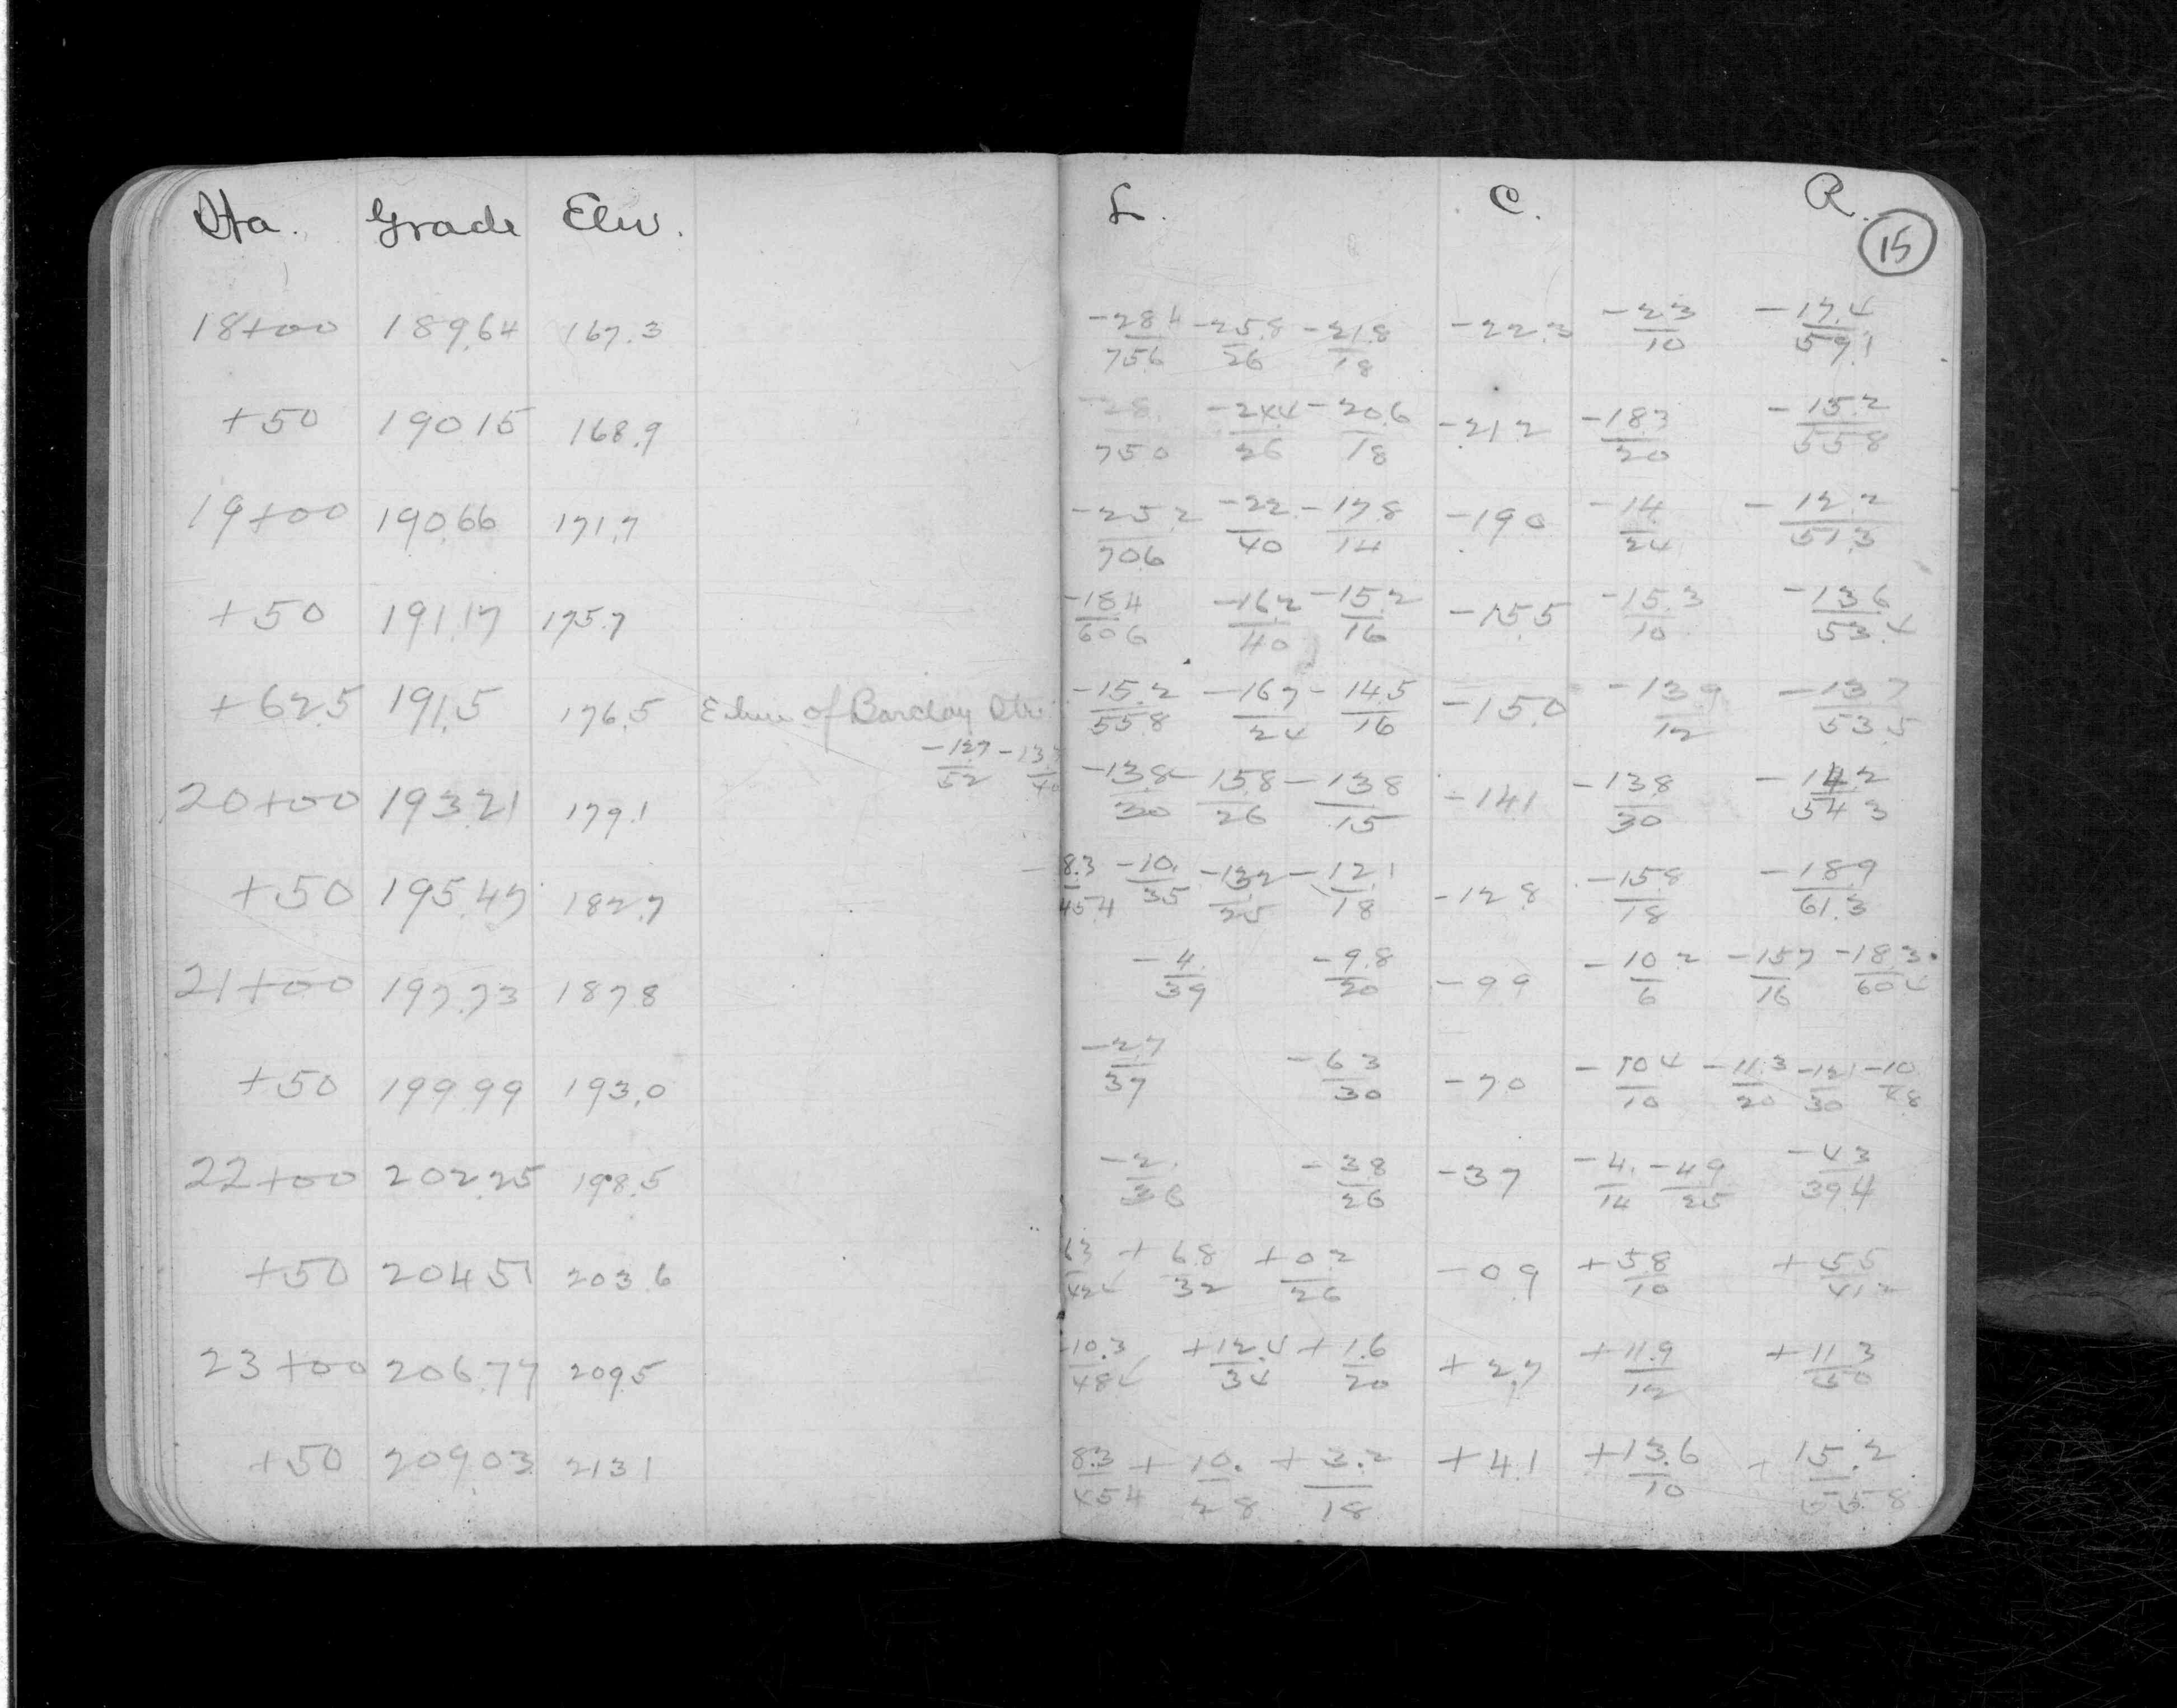 Sta. Grade Elev. L. C. R.
15
18+00 189.64 167.3 -28.4/75.6 -25.8/26 -21.8/18 -22.3 -23/10 -17.4/59.1
+50 190.15 168.9 -28./75.0 -24.4/26 -20.6/18 -21.2 -18.3/20 -15.2/55.8
19+00 190.66 171.7 -25.2/70.6 -22./40 -17.8/14 -19.0 -14./24 -12.2/51.3
+50 191.17 175.7 -18.4/60.6 -16.2/40 -15.2/16 -15.5 -15.3/10 -13.6/53.4
+62.5 191.5 176.5 E line of Barclay Str. -15.2/55.8 -16.7/24 -14.5/16 -15.0 -13.9/12 -13.7/53.5
20+00 193.21 179.1 -12.7/52 -13.8/30 -15.8/26 -13.8/15 -14.1 -13.8/30 -14.2/54.3
+50 195.47 182.7 -8.3/45.4 -10./35 -13.2/25 -12.1/18 -12.8 -15.8/18 -18.9/61.3
21+00 197.73 187.8 -4./39 -9.8/20 -9.9 -10.2/6 -15.7/16 -18.3/60.4
+50 199.99 193.0 -2.7/37 -6.3/30 -7.0 -10.4/10 -11.3/20 -12.1/30 -10./48
22+00 202.25 198.5 -2./36 -3.8/26 -3.7 -4./14 -4.9/25 -4.3/39.4
+50 204.51 203.6 6.3/42.4 +6.8/32 +0.2/26 -0.9 +5.8/10 +5.5/41.2
23+00 206.77 209.5 10.3/48.4 +12.4/34 +1.6/20 +2.7 +11.9/12 +11.3/50
+50 209.03 213.1 8.3/45.4 +10./28 +3.2/18 +4.1 +13.6/10 +15.2/55.8